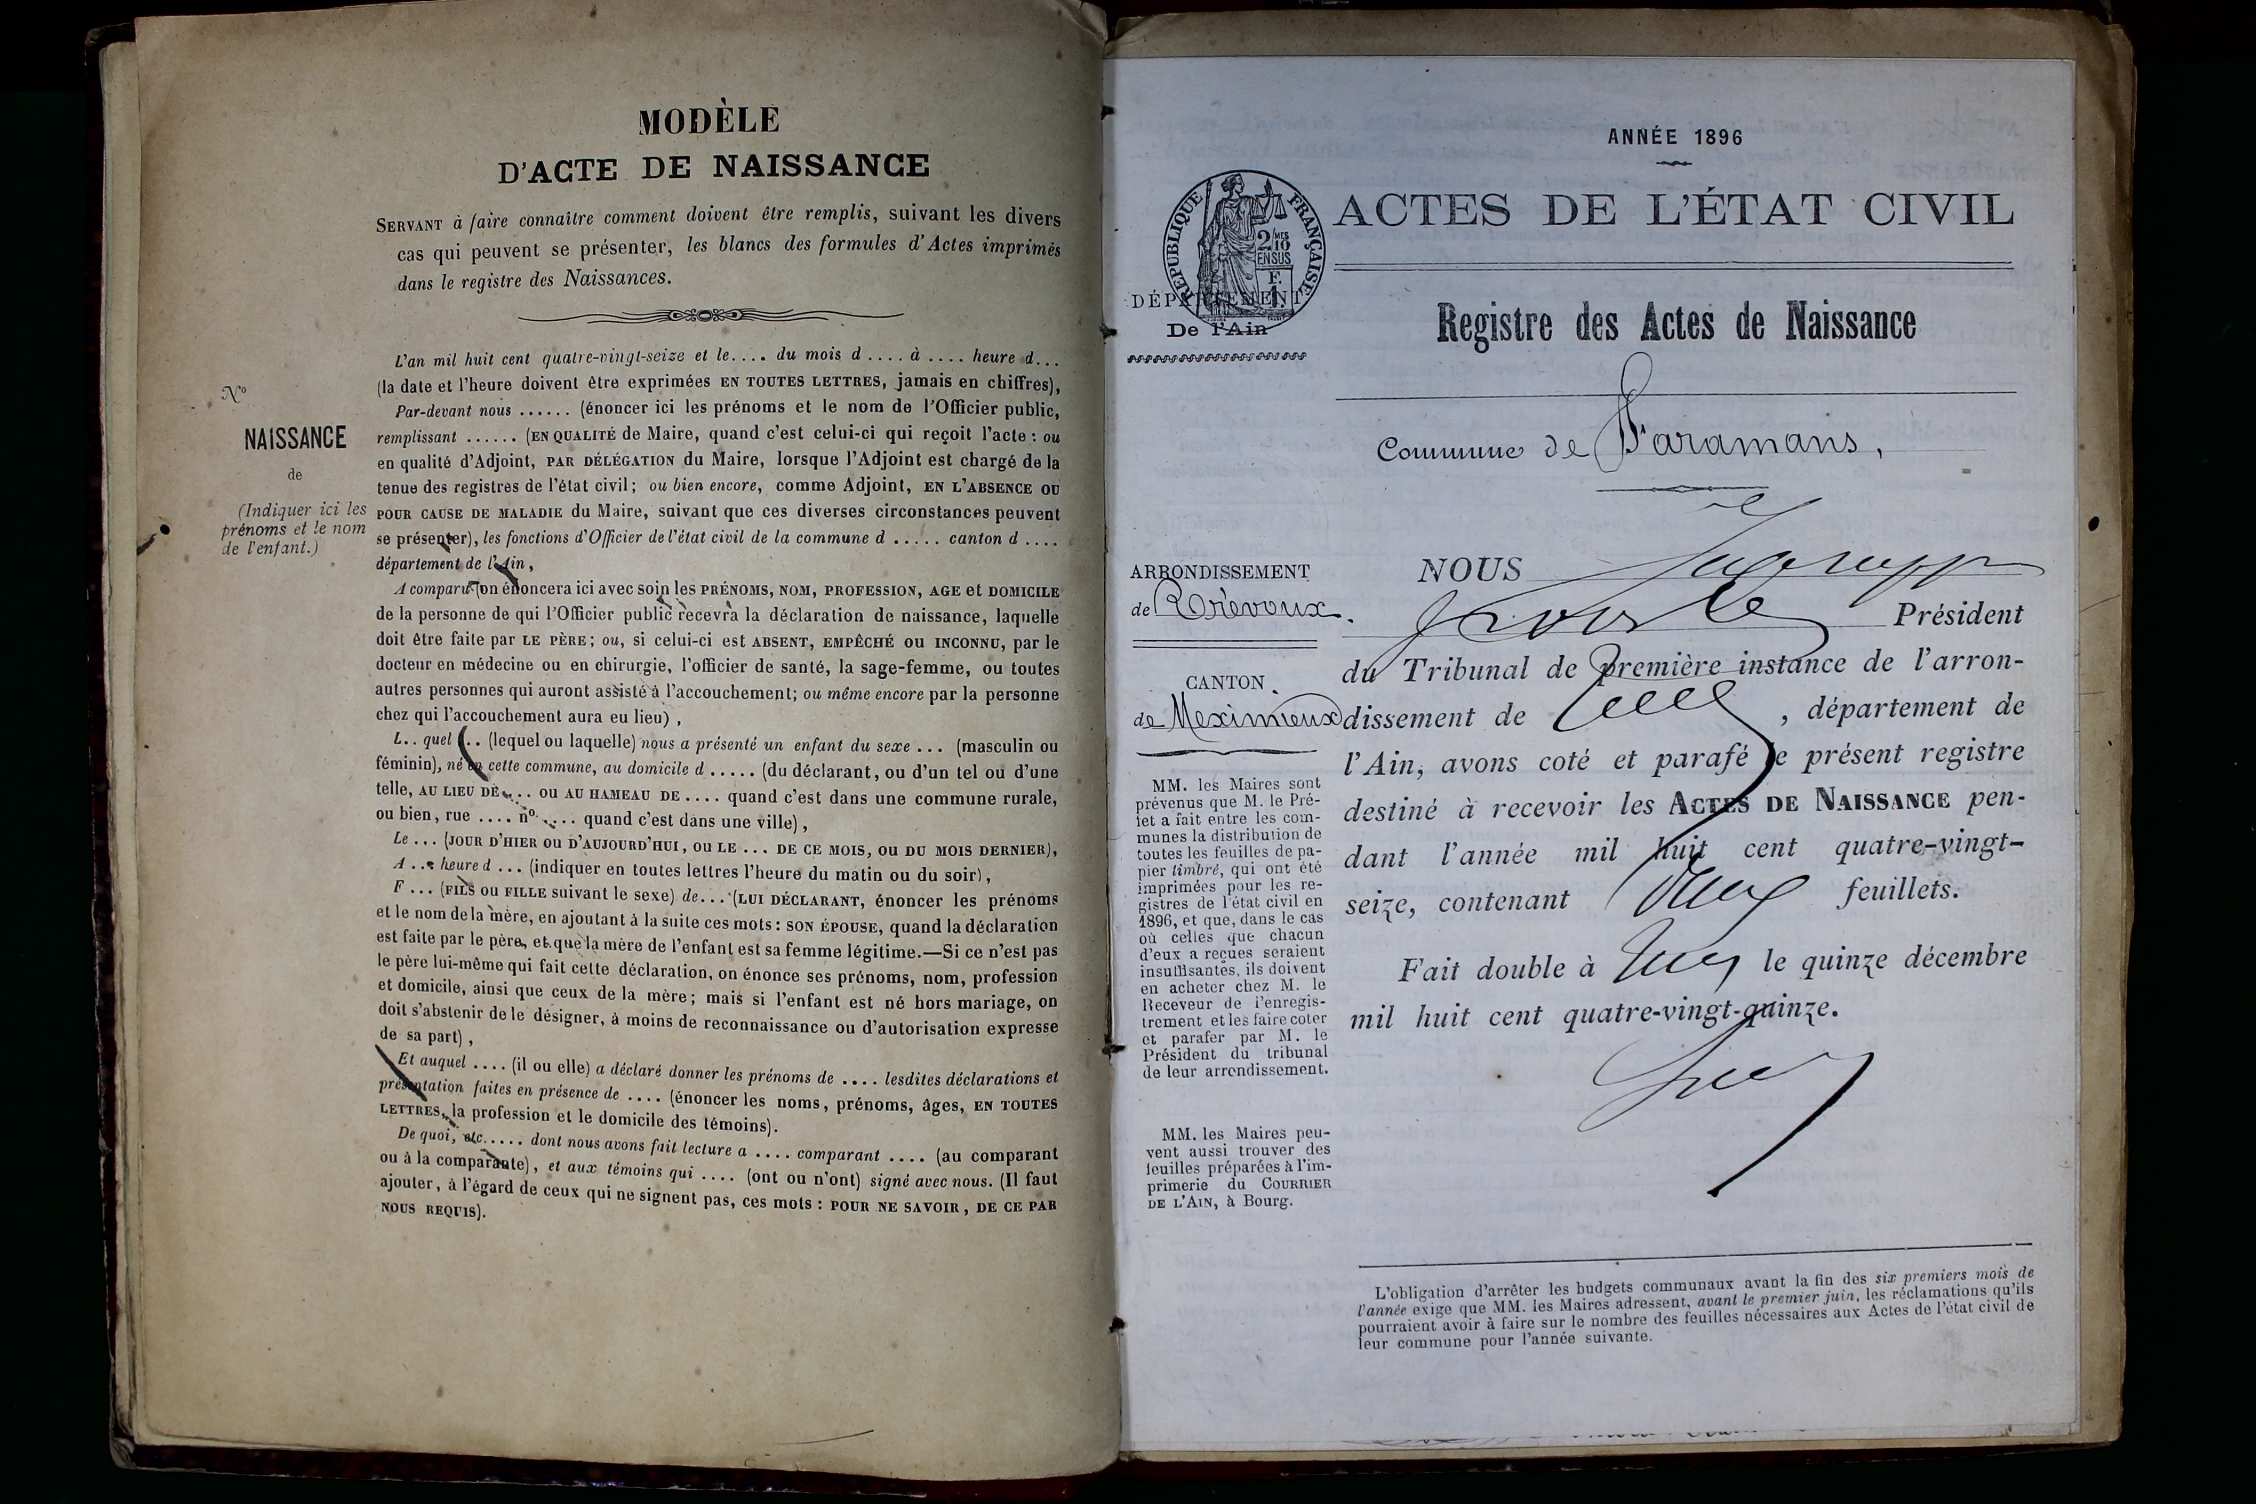 MODÈLE
D'ACTE DE NAISSANCE
SERVANT à faire connaître comment doivent être remplis, suivant les divers
cas qui peuvent se présenter, les blancs des formules d'Actes imprimés
dans le registre des Naissances.
N°
NAISSANCE
de
(Indiquer ici les
prénoms et le nom
de l'enfant.)
L'an mil huit cent quatre-vingt-seize et le.... du mois d .... à .... heure d...
(la date et l'heure doivent être exprimées EN TOUTES LETTRES, jamais en chiffres),
Par-devant nous ...... (énoncer ici les prénoms et le nom de l'Officier public,
remplissant ...... (EN QUALITÉ de Maire, quand c'est celui-ci qui reçoit l'acte : ou
en qualité d'Adjoint, PAR DÉLÉGATION du Maire, lorsque l'Adjoint est chargé de la
tenue des registres de l'état civil; ou bien encore, comme Adjoint, EN L'ABSENCE OU
POUR CAUSE DE MALADIE du Maire, suivant que ces diverses circonstances peuvent
se présenter), les fonctions d'Officier de l'état civil de la commune d ..... canton d ....
département de l'Ain,
A comparu (on énoncera ici avec soin les PRÉNOMS, NOM, PROFESSION, AGE et DOMICILE
de la personne de qui l'Officier public recevra la déclaration de naissance, laquelle
doit être faite par LE PÈRE; ou, si celui-ci est ABSENT, EMPÊCHÉ OU INCONNU, par le
docteur en médecine ou en chirurgie, l'officier de santé, la sage-femme, ou toutes
autres personnes qui auront assisté à l'accouchement; ou même encore par la personne
chez qui l'accouchement aura eu lieu),
L.. quel ... (lequel ou laquelle) nous a présenté un enfant du sexe ... (masculin ou
féminin), né en cette commune, au domicile d ..... (du déclarant, ou d'un tel ou d'une
telle, AU LIEU DE.... OU AU HAMEAU DE .... quand c'est dans une commune rurale,
ou bien, rue .... n° .... quand c'est dans une ville),
Le ... (JOUR D'HIER OU D'AUJOURD'HUI, OU LE ... DE CE MOIS, OU DU MOIS DERNIER),
A ... heure d ... (indiquer en toutes lettres l'heure du matin ou du soir),
F ... (FILS OU FILLE suivant le sexe) de... (LUI DÉCLARANT, énoncer les prénoms
et le nom de la mère, en ajoutant à la suite ces mots : SON ÉPOUSE, quand la déclaration
est faite par le père, et que la mère de l'enfant est sa femme légitime.—Si ce n'est pas
le père lui-même qui fait cette déclaration, on énonce ses prénoms, nom, profession
et domicile, ainsi que ceux de la mère; mais si l'enfant est né hors mariage, on
doit s'abstenir de le désigner, à moins de reconnaissance ou d'autorisation expresse
de sa part),
Et auquel .... (il ou elle) a déclaré donner les prénoms de .... lesdites déclarations et
présentation faites en présence de .... (énoncer les noms, prénoms, âges, EN TOUTES
LETTRES, la profession et le domicile des témoins).
De quoi, etc..... dont nous avons fait lecture a .... comparant .... (au comparant
ou à la comparante), et aux témoins qui .... (ont ou n'ont) signé avec nous. (Il faut
ajouter, à l'égard de ceux qui ne signent pas, ces mots : POUR NE SAVOIR, DE CE PAR
NOUS REQUIS).
ANNÉE 1896
ACTES DE L'ÉTAT CIVIL
RÉPUBLIQUE FRANÇAISE
2/10 MES
EN SUS
F.
1
DÉPARTEMENT
De l'Ain
Registre des Actes de Naissance
Commune de Faramans,
ARRONDISSEMENT
de Trévoux.
CANTON
de Meximieux
MM. les Maires sont
prévenus que M. le Pré-
fet a fait entre les com-
munes la distribution de
toutes les feuilles de pa-
pier timbré, qui ont été
imprimées pour les re-
gistres de l'état civil en
1896, et que, dans le cas
où celles que chacun
d'eux a reçues seraient
insuffisantes, ils doivent
en acheter chez M. le
Receveur de l'enregis-
trement et les faire coter
et parafer par M. le
Président du tribunal
de leur arrondissement.
MM. les Maires peu-
vent aussi trouver des
feuilles préparées à l'im-
primerie du COURRIER
DE L'AIN, à Bourg.
NOUS
Président
du Tribunal de première instance de l'arron-
dissement de , département de
l'Ain, avons coté et parafé le présent registre
destiné à recevoir les ACTES DE NAISSANCE pen-
dant l'année mil huit cent quatre-vingt-
seize, contenant feuillets.
Fait double à le quinze décembre
mil huit cent quatre-vingt-quinze.
L'obligation d'arrêter les budgets communaux avant la fin des six premiers mois de
l'année exige que MM. les Maires adressent, avant le premier juin, les réclamations qu'ils
pourraient avoir à faire sur le nombre des feuilles nécessaires aux Actes de l'état civil de
leur commune pour l'année suivante.